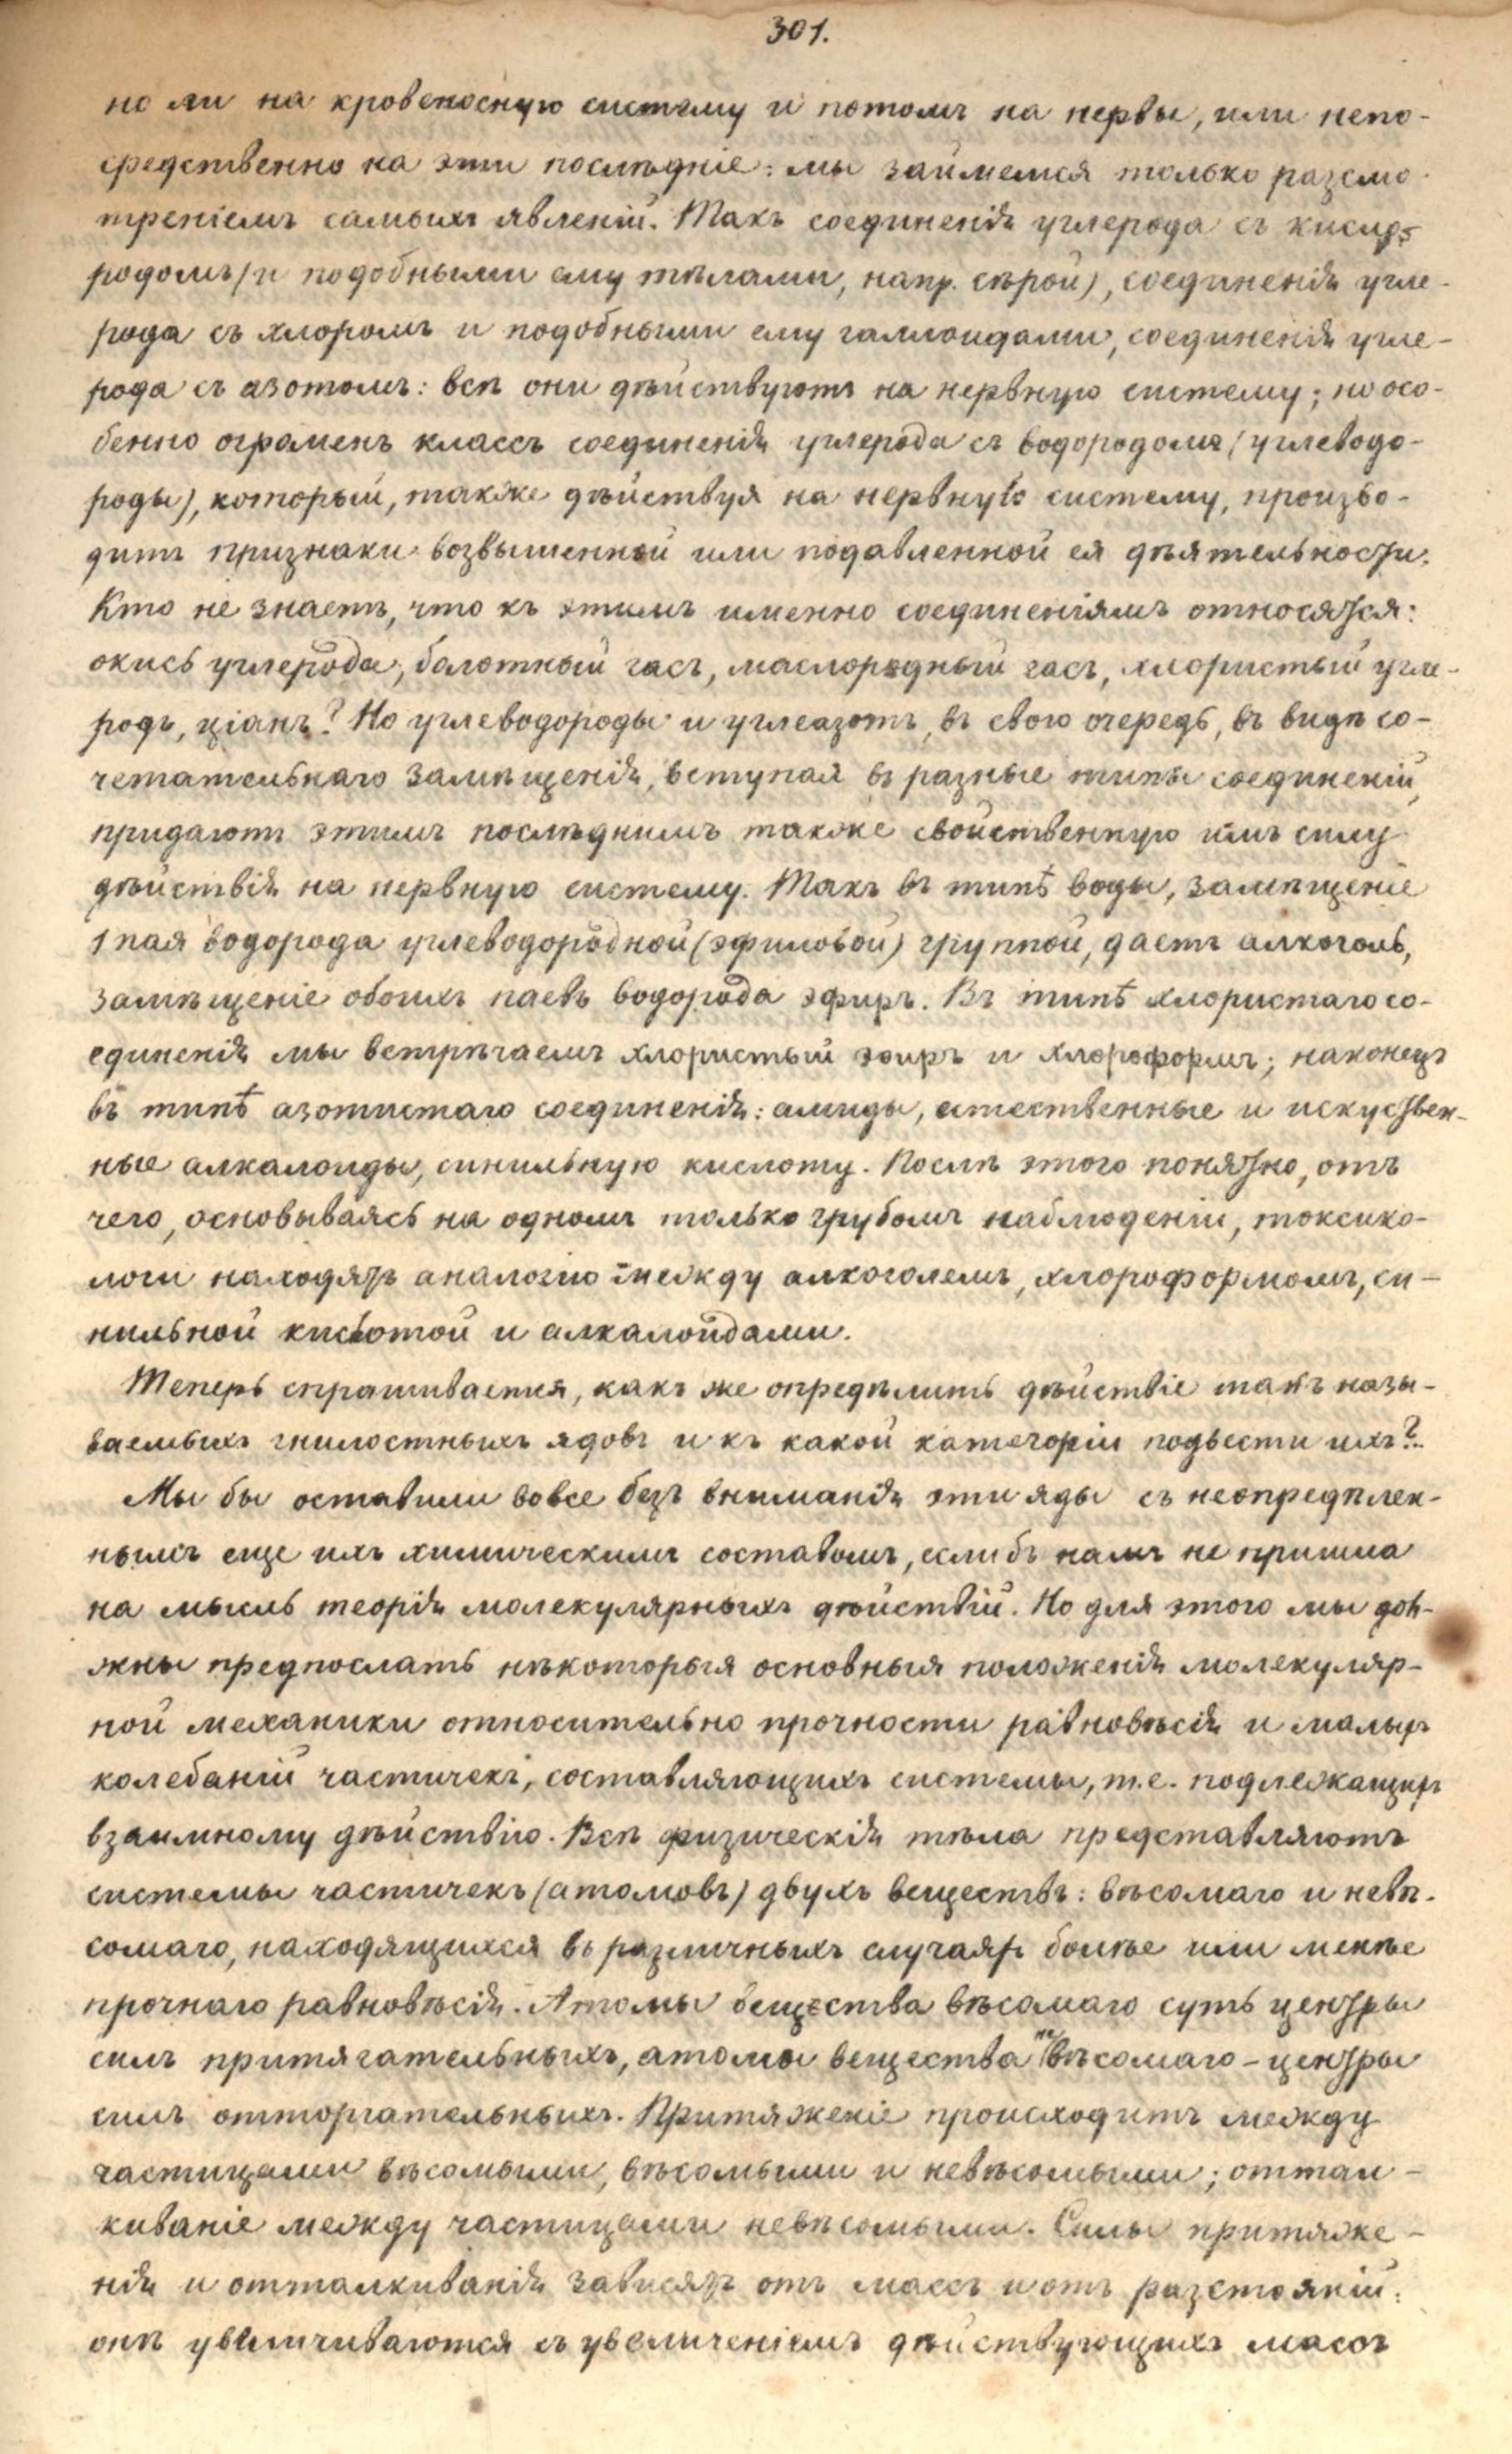 301.
но ли на кровеносную систему и потомъ на нервы, или непо-
средственно на эти послѣдніе: мы займемся только разсмо-
трѣніемъ самыхъ явленій. Такъ соединенія углерода съ кисло-
родомъ (и подобными ему тѣлами, напр. сѣрой), соединенія угле-
рода съ хлоромъ и подобными ему галлоидами, соединенія угле-
рода съ азотомъ: всѣ они дѣйствуютъ на нервную систему; но осо-
бенно огроменъ классъ соединенія углерода съ водородомъ (углеводо-
роды), который, также дѣйствуя на нервную систему, произво-
дитъ признаки возвышенной или подавленной ея дѣятельности.
Кто не знаетъ, что къ этимъ именно соединеніямъ относятся:
окись углерода, болотный гасъ, маслородный гасъ, хлористый угле-
родъ, ціанъ? Но углеводороды и углеазотъ, въ свою очередь, въ видѣ со-
четательнаго замѣщенія, вступая въ разные типы соединеній,
придаютъ этимъ послѣднимъ также свойственную имъ силу
дѣйствія на нервную систему. Такъ въ типѣ воды, замѣщеніе
1 пая водорода углеводородной (эфиловой) группой, даетъ алкоголь,
замѣщеніе обоихъ паевъ водорода эфиръ. Въ типѣ хлористаго со-
единенія мы встрѣчаемъ хлористый эѳиръ и хлороформъ; наконецъ
въ типѣ азотистаго соединенія: амиды, естественные и искуствен-
ные алкалоиды, синильную кислоту. Послѣ этого понятно, отъ
чего, основываясь на одномъ только грубомъ наблюденіи, токсико-
логи находятъ аналогію между алкоголемъ, хлороформомъ, си-
нильной кислотой и алкалоидами.
Теперь спрашивается, какъ же опредѣлить дѣйствіе такъ назы-
ваемыхъ гнилостныхъ ядовъ и къ какой категоріи подвести ихъ?..
Мы бы оставили вовсе безъ вниманія эти яды съ неопредѣлен-
нымъ еще ихъ химическимъ составомъ, еслибъ намъ не пришла
на мысль теорія молекулярныхъ дѣйствій. Но для этого мы дол-
жны предпослать нѣкоторыя основныя положенія молекуляр-
ной механики относительно прочности равновѣсія и малыхъ
колебаній частичекъ, составляющихъ системы, т.е. подлежащихъ
взаимному дѣйствію. Всѣ физическія тѣла представляютъ
системы частичекъ (атомовъ) двухъ веществъ: вѣсомаго и невѣ-
сомаго, находящихся въ различныхъ случаяхъ болѣе или менѣе
прочнаго равновѣсія. Атомы вещества вѣсомаго суть центры
силъ притягательныхъ, атомы вещества невѣсомаго - центры
силъ отторгательныхъ. Притяженіе происходитъ между
частицами вѣсомыми, вѣсомыми и невѣсомыми; оттал-
киваніе между частицами невѣсомыми. Силы притяже-
нія и отталкиванія зависятъ отъ массъ и отъ разстояній:
онѣ увеличиваются съ увеличеніемъ дѣйствующихъ массъ